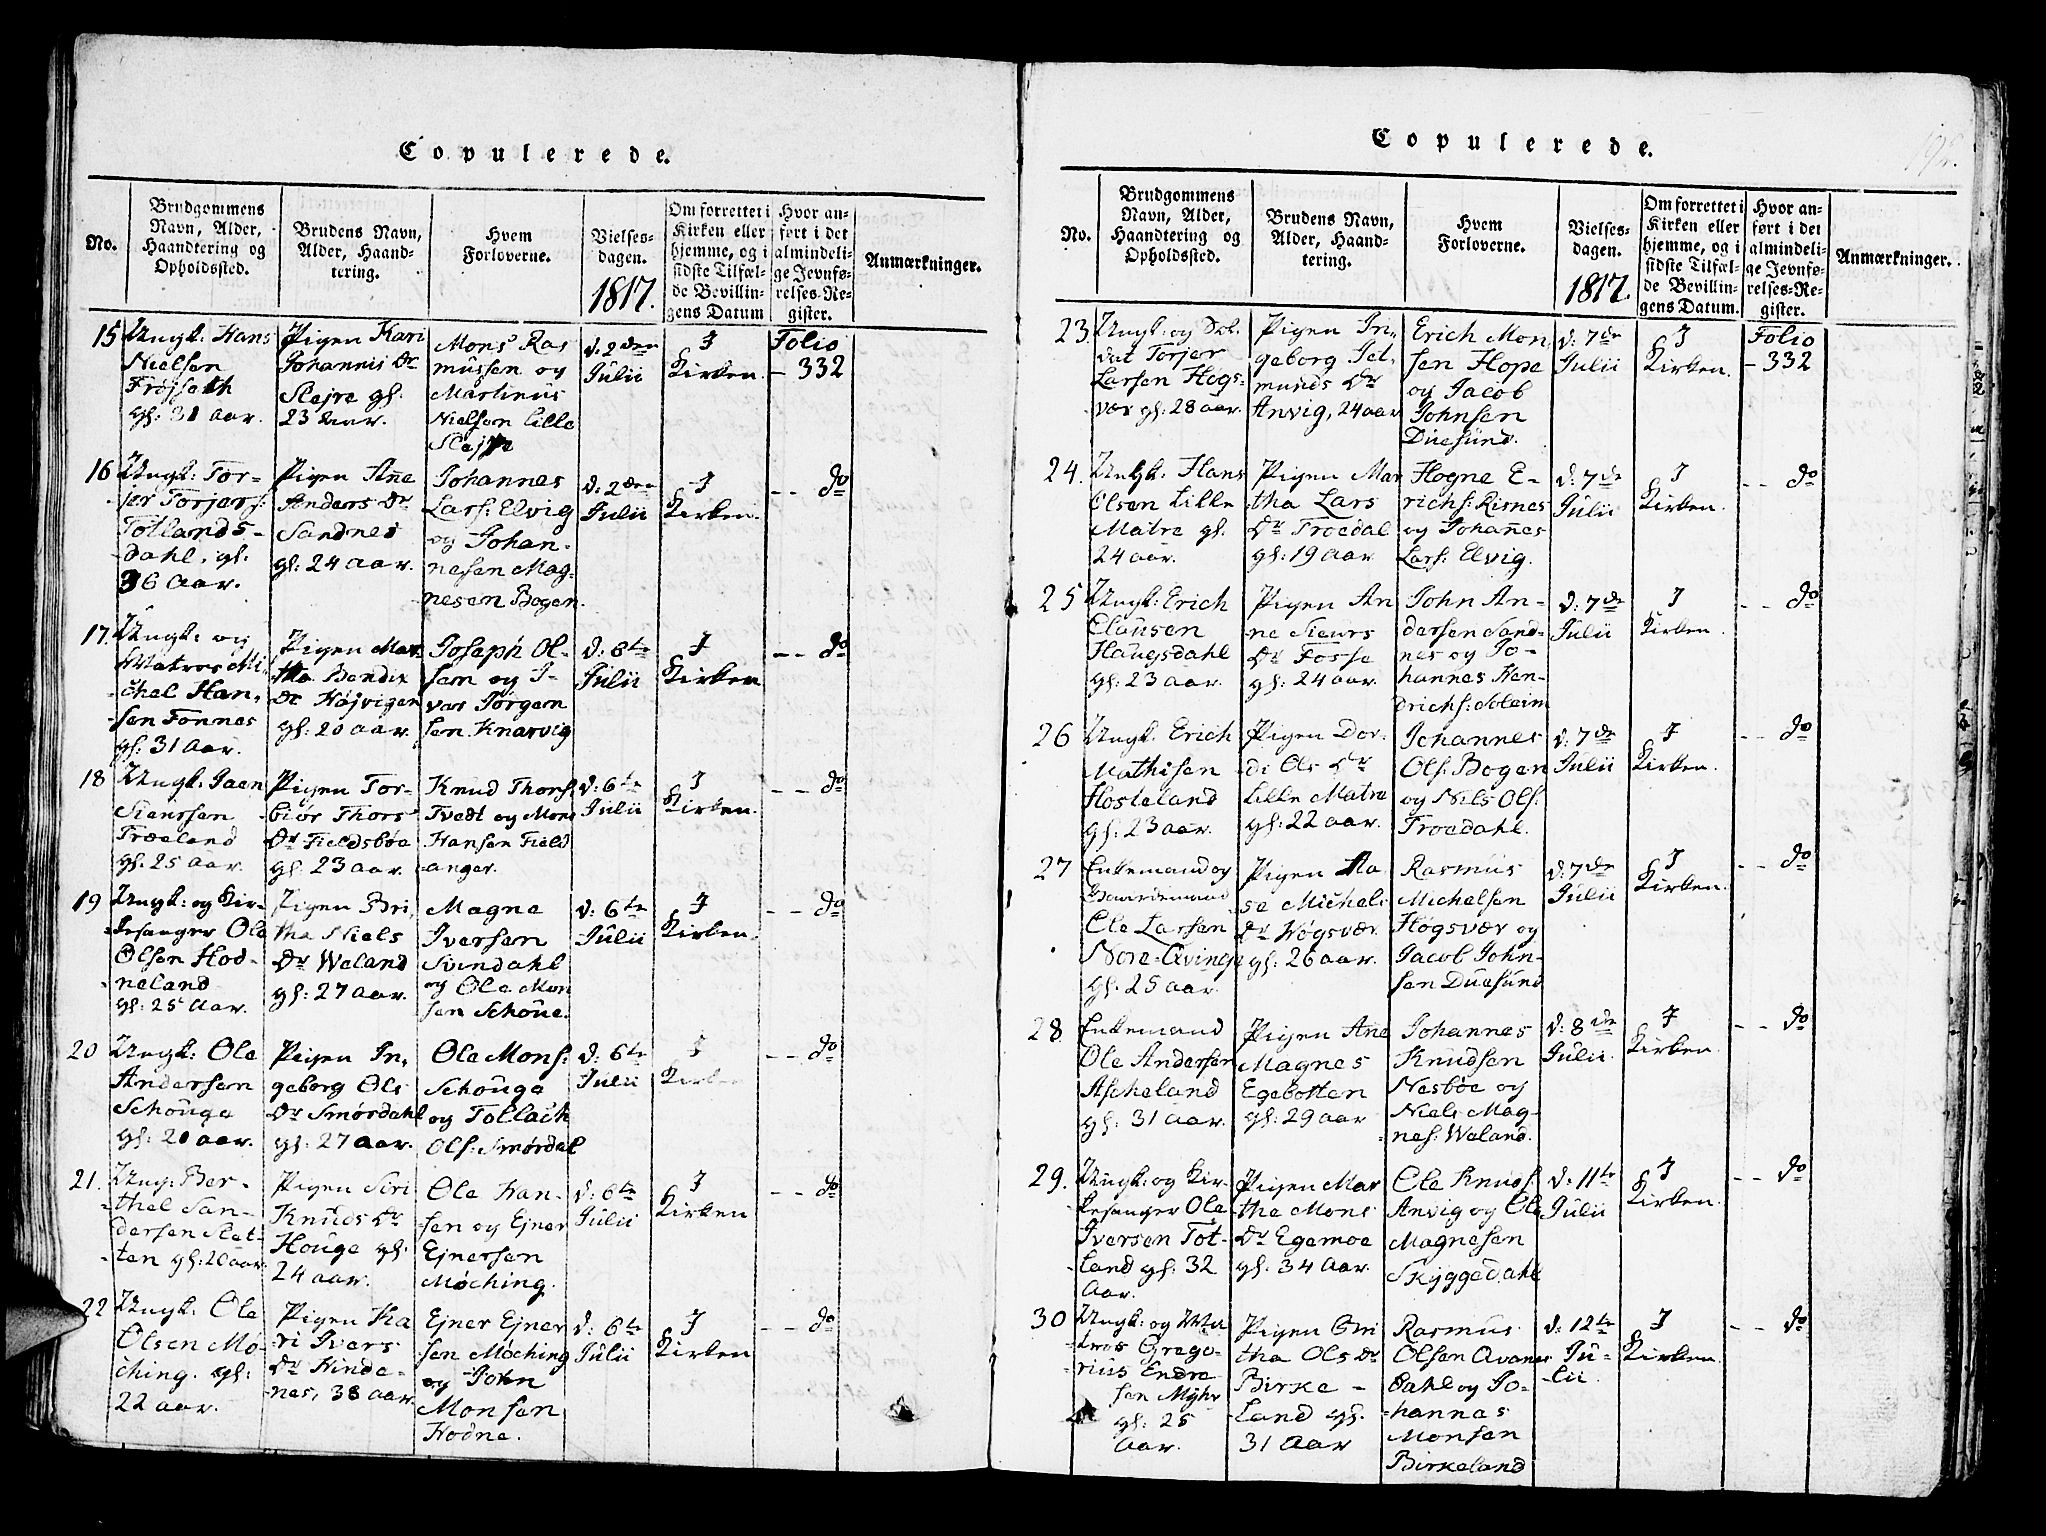 Copulerede.
No.
Brudgommens
Navn, Alder,
Haandtering og
Opholdssted.
Brudens Navn,
Alder, Haand-
tering.
Hvem
Forloverne.
Vielses-
dagen.
1817.
Om forrettet i
Kirken eller
hjemme, og i
sidste Tilfæl-
de Bevillin-
gens Datum
Hvor an-
ført i det
almindeli-
ge Jevnfø-
relses-Re-
gister.
Anmærkninger.
15
Ungk: Hans
Nielsen
Frøjseth
gl: 31 Aar.
Pigen Kari
Johannis Dr
Slejre gl.
23 Aar.
Mons Ras
mussen og
Martinus
Nielsen Lille
Slejre
d: 2den
Julii
I
Kirken.
Folio
- 332
16
Ungk: Tor-
jer Torjers:
Totlands-
dahl, gl:
36 Aar.
Pigen Ane
Anders Dr
Sandnes
gl: 24 Aar.
Johannes
Lars: Elvig
og Johan-
nesen Mag-
nesen Bogen.
d: 2den
Julii
I
Kirken.
-- do
17.
Ungk: og
Matros Mi
chel Han-
sen Fonnes
gl: 31 Aar.
Pigen Mar
tha Bendix
Dr Højvigen
gl: 20 Aar.
Joseph Ol-
sen og I-
var Jørgen
sen Knarvig
d: 6te
Julii
I
Kirken
-- do
18
Ungk: Jaen
Sieurssen
Træeland
gl: 25 Aar.
Pigen Tor-
biør Thors
Dr Fieldsbøe
gl: 23 aar.
Knud Thors:
Tvedt og Mons
Hansen Field
anger.
d: 6te
Julii
I
Kirken.
-- do
19
Ungk: og Kir-
kesanger Ole
Olsen Hod-
neland
gl: 25 Aar.
Pigen Bri,
tha Niels
Dr Weland
gl: 27 Aar.
Magne
Iversen
Svindahl
og Ole Mon
sen Schoue.
d: 6te
Julii
I
Kirken.
-- do
20
Ungk: Ole
Andersen
Schouge
gl: 20 aar.
Pigen In,
geborg Ols
Dr Smørdahl
gl: 27 aar.
Ole Mons:
Schouge
og Tollach
Ols: Smørdal
d: 6te
Julii
I
Kirken
-- do
21.
Ung: Ber-
thel San-
dersen Slet-
ten gl: 20 aar.
Pigen Siri
Knuds Dr
Houge gl:
24 aar.
Ole Han-
sen og Ejner
Ejnersen
Møching.
d: 6te
Julii
I
Kirken
-- do
22
Ungk: Ole
Olsen Mø-
ching. gl:
22 aar.
Pigen Ka
ri Ivers
Dr Hinde-
nes, 38 aar.
Ejner Ejner
sen Møching
og John
Monsen
Hodne.
d: 6te
Julii
I
Kirken
-- do
Copulerede.
No.
Brudgommens
Navn, Alder,
Haandtering og
Opholdssted.
Brudens Navn,
Alder, Haand-
tering.
Hvem
Forloverne.
Vielses-
dagen.
1817.
Om forrettet i
Kirken eller
hjemme, og i
sidste Tilfæl-
de Bevillin-
gens Datum.
Hvor an-
ført i det
almindeli-
ge Jevnfø-
relses-Re-
gister.
Anmærkninger.
23
Ungk: og Sol.
dat Torjer
Larsen Høgs-
vær gl: 28 aar.
Pigen In,
geborg Jet-
munds Dr
Anvig, 24 aar
Erich Mon
sen Hope
og Jacob
Johnsen
Duesund.
d: 7de
Julii
I
Kirken.
Folio
- 332
24.
Ungk: Hans
Olsen Lille
Matre gl.
24 aar.
Pigen Mar
tha Lars
Dr Troedal
gl: 19 Aar
Hogne E-
richs: Risnes
og Johanes
Lars: Elvig.
d: 7de
Julii
I
Kirken.
-- do
25
Ungk: Erich
Clausen
Haugsdahl
gl: 23 aar.
Pigen An
ne Sieurs
Dr Fosse
gl: 24 aar.
John An-
dersen Sand-
nes og Jo-
hannes Hen-
drichs: Soleim
d: 7de
Julii
I
Kirken.
-- do
26
Ungk. Erich
Mathisen
Hosteland
gl: 23 aar.
Pigen Dor-
di Ols Dr
Lille Matre
gl: 22 aar.
Johannes
Ols: Bogen
og Nils Ols:
Troedahl.
d: 7de
Julii
I
Kirken.
-- do
27
Enkemand og
Gaardemand
Ole Larsen
Nore-Qvinge
gl: 25 aar.
Pigen Aa
se Michels
Dr Høgsvær
gl: 26 aar.
Rasmus
Michelsen
Høgsvær og
Jacob John-
sen Duesund
d: 7de
Julii
I
Kirken.
-- do
28
Enkemand
Ole Andersen
Ascheland
gl: 31 aar.
Pigen Ane
Magnes
Egebotten
gl: 29 aar
Johannes
Knudsen
Nesbøe og
Niels Mag-
nes: Weland.
d: 8de
Julii.
I
Kirken.
-- do
29.
Ungk: og Kir-
kesanger Ole
Iversen Tot-
land gl: 32
Aar.
Pigen Mar
tha Mons
Dr Egemoe
gl: 34 Aar.
Ole Knuds:
Anvig og Ole
Magnesen
Skyggedahl
d: 11te
Julii
I
Kirken.
-- do
30
Ungk: og Ma
tros Grego-
rius Endre
sen Myhr
gl: 25
Aar.
Pigen Bri
tha Ols Dr
Birke-
land gl.
31 Aar
Rasmus
Olsen Qvame
Dahl og Jo-
hannes
Monsen
Birkeland
d: 12te
Ju-
lii.
I
Kirken.
-- do